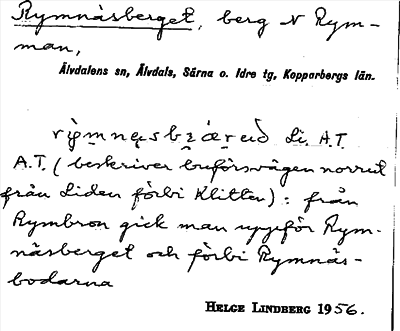 Rymnäsberget, berg N Rym-
man,
Älvdalens sn, Älvdals, Särna o. Idre tg, Kopparbergs län.
Li. A.T.
A.T. (beskriver buförsvägen norrut
från Liden förbi Klitten): från
Rymbron gick man uppför Rym-
näsberget och förbi Rymnäs-
bodarna
HELGE LINDBERG 1956.